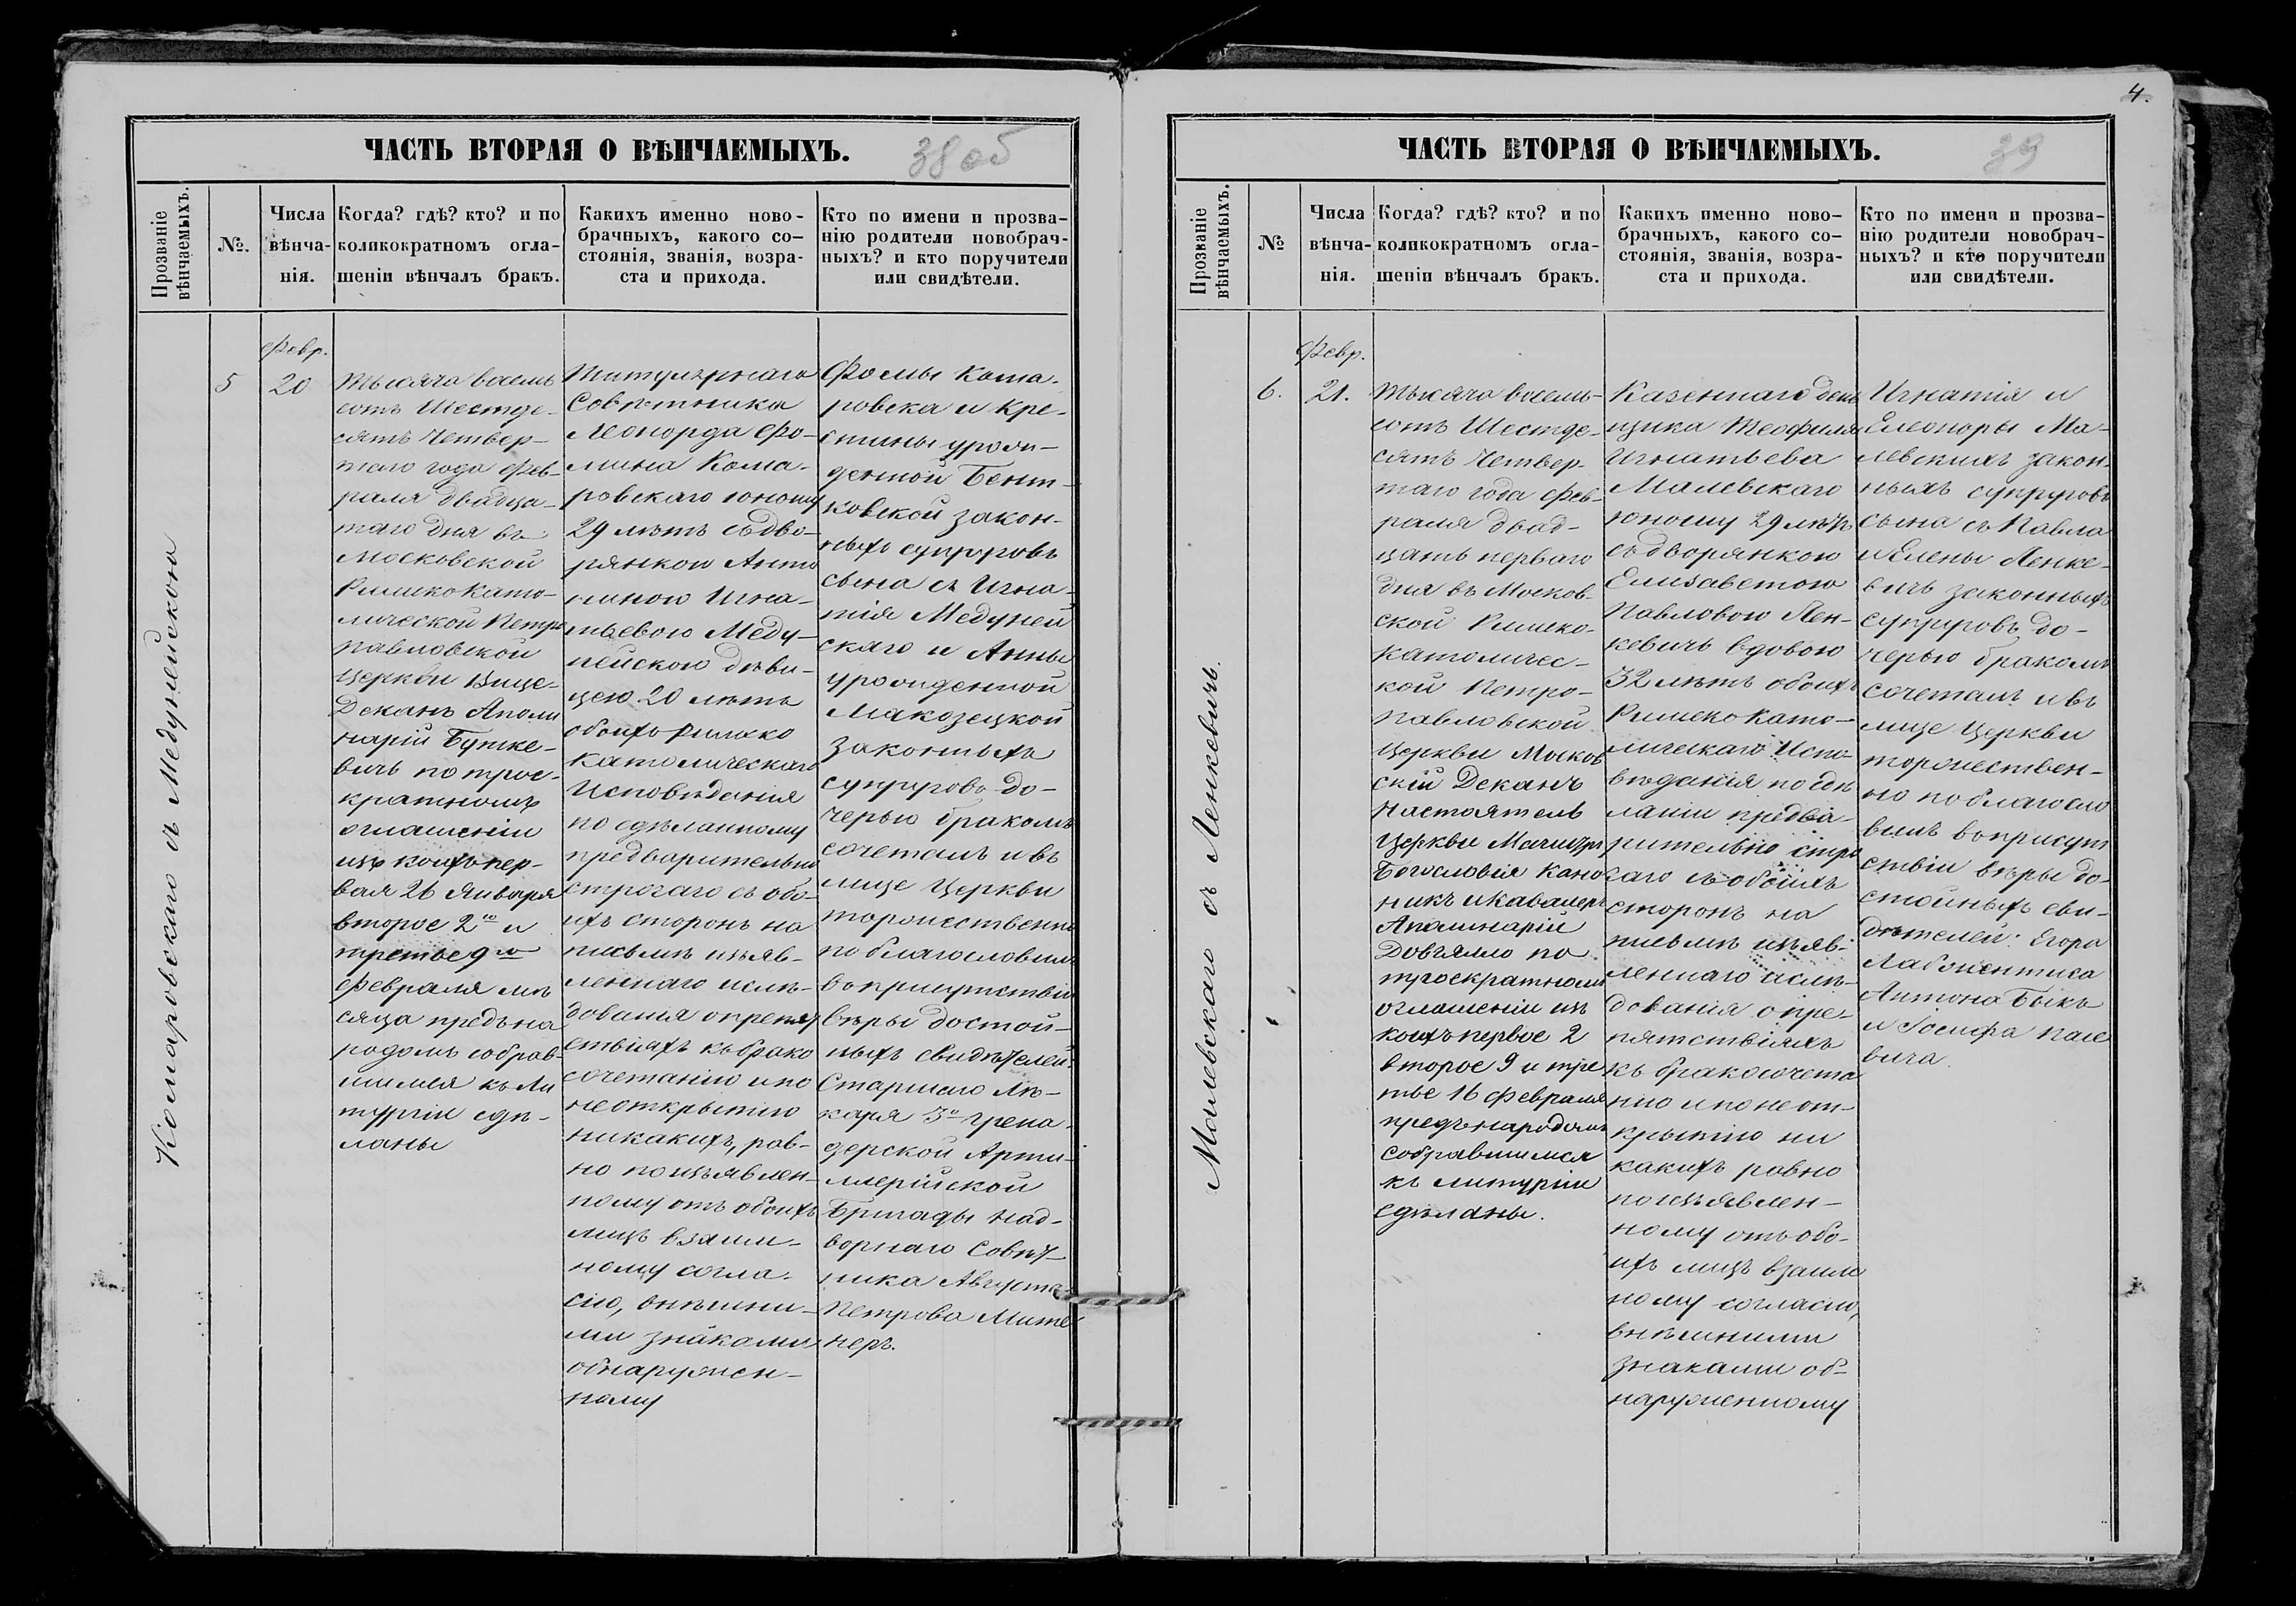 ЧАСТЬ ВТОРАЯ О ВѢНЧАЕМЫХЪ.
38 об
Прозваніе
вѣнчаемыхъ.
№.
Числа
вѣнча-
нія.
Когда? гдѣ? кто? и по
коликократномъ огла-
шеніи вѣнчалъ бракъ.
Какихъ именно ново-
брачныхъ, какого со-
стоянія, званія, возра-
ста и прихода.
Кто по имени и прозва-
нію родители новобрач-
ныхъ? и кто поручители
или свидѣтели.
Комаровскаго съ Медунейскою
5
Февр.
20
Тысяча восемь
сотъ Шестде-
сятъ Четвер-
таго года Фев-
раля двадца-
таго дня въ
Московской
Римско Като-
лической Петро
павловской
Церкви Вице-
Деканъ Аполи
нарій Бутке-
вичъ по трое-
кратномъ
оглашеніи
изъ коихъ пер-
вая 26 Января
второе 2го и
третье 9го
Февраля мѣ
сяца предъ на
родомъ собрав-
шимся къ Ли
тургіи сдѣ-
ланы
Титулярнаго
Совѣтника
Леонорда Фо-
мина Кома-
ровскаго юношу
29 лѣтъ съ дво-
рянкою Анто
ниною Игна-
тьевою Меду-
нейскою дѣви-
цею 20 лѣтъ
обоихъ Римско
Католическаго
Исповѣданія
по сдѣланному
предварительно
строгаго съ обо-
ихъ сторонъ на
письмѣ изъяв-
леннаго излѣ-
дованія о препят
ствіяхъ къ брако
сочетанію и по
не открытію
никакихъ, рав-
но по изъявлен-
ному отъ обоихъ
лицъ взаим-
ному согла-
сію, внѣшни-
ми знаками
обнаружен-
ному
Фомы Кома-
ровска и Кре-
стины урожи-
денной Бент-
ковской закон-
ныхъ супруговъ
сына съ Игна-
тія Медуней
скаго и Анны
урожиденной
Макозецкой
законныхъ
супруговъ до-
черью бракомъ
сочеталъ и въ
лице Церкви
торжественно
поблагословилъ
въ присутствіи
вѣры достой-
ныхъ свидѣтелей:
Старшаго Лѣ-
каря 3й Грена-
дерской Арти-
ллерійской
Бригады Над-
ворнаго Совѣт-
ника Августа
Петрова Мите
неръ.
4.
ЧАСТЬ ВТОРАЯ О ВѢНЧАЕМЫХЪ.
39
Прозваніе
вѣнчаемыхъ.
№
Числа
вѣнча-
нія.
Когда? гдѣ? кто? и по
коликократномъ огла-
шеніи вѣнчалъ бракъ.
Какихъ именно ново-
брачныхъ, какого со-
стоянія, званія, возра-
ста и прихода.
Кто по имени и прозва-
нію родители новобрач-
ныхъ? и кто поручители
или свидѣтели.
Малевскаго съ Ленкевичъ.
6.
Февр.
21.
Тысяча восемь-
сотъ Шестде-
сятъ Четвер-
таго года Фев-
раля двад-
цать перваго
дня въ Москов-
ской Римско-
католичес-
кой Петро-
павловской
Церкви Москов
скій Деканъ
Настоятель
Церкви Магистръ
Богословія Кано
никъ и Кавалеръ
Аполинарій
Довгялло по
троекратномъ
оглашеніи изъ
коихъ первое 2
второе 9 и тре
тье 16 Февраля
предъ народомъ
собравшимся
къ литургіи
сдѣланы.
Казеннаго день
щика Теофиля
Игнатьева
Малевскаго
юношу 29 лѣтъ
съ дворянкою
Елизаветою
Павловою Лен-
кевичъ вдовою
32 лѣтъ обоихъ
Римско Като-
лическаго Испо-
вѣданія по сдѣ
ланіи предва-
рительно стро
гаго съ обоихъ
сторонъ на
письмѣ изъяв-
леннаго излѣ-
дованія о пре-
пятствіяхъ
къ бракосочета
нію и по не от-
крытію ни
какихъ равно
по изъявлен-
ному отъ обо-
ихъ лицъ взаим
ному согласію,
внѣшними
знаками об-
наруженному
Игнатія и
Елеоноры Ма-
левскихъ закон-
ныхъ супруговъ
сына съ Павла
и Елены Ленке-
вичъ законныхъ
супруговъ до-
черью бракомъ
сочеталъ и въ
лице Церкви
торжествен-
но поблагосло
вилъ въ присут
ствіи вѣры до-
стойныхъ сви-
дѣтелей: Егора
Антона Быкъ
и Іосифа Пале
вича.